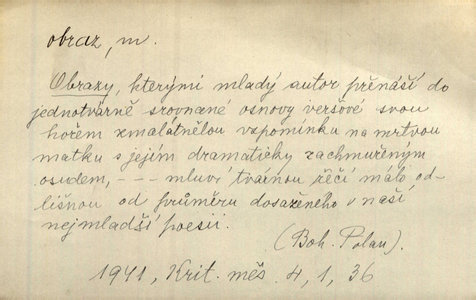 obraz, m.
Obrazy, kterými mladý autor přenáší do
jednotvárně srovnané osnovy veršové svou
hořem zmalátnělou vzpomínku na mrtvou
matku s jejím dramaticky zachmuřeným
osudem, - - - mluví tvárnou řečí málo od-
lišnou od průměru dosaženého v naší
nejmladší poesii.
(Boh. Polan).
1941, Krit. měs. 4, 1, 36